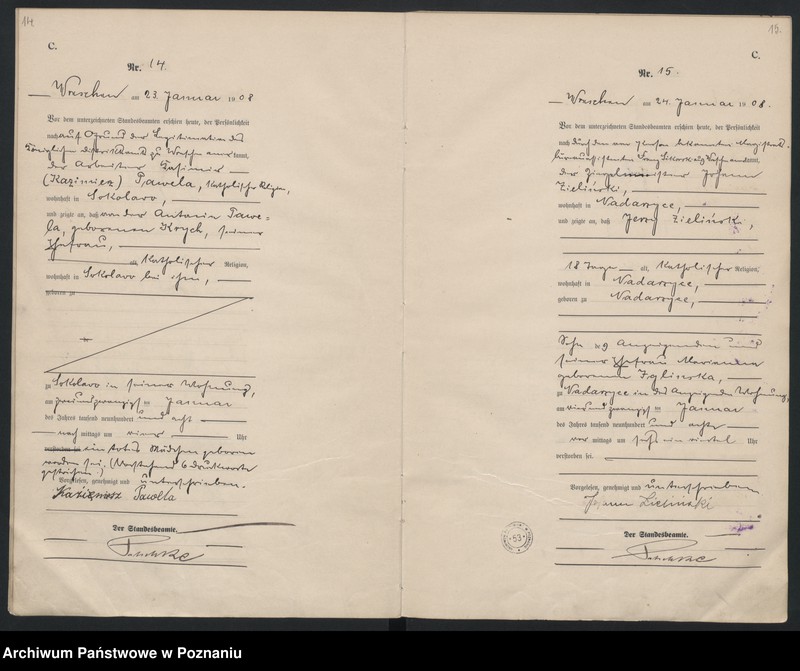 14
C.
Nr. 14.
Wreschen am 23. Januar 1908
Vor dem unterzeichneten Standesbeamten erschien heute, der Persönlichkeit
nach auf Grund der Legitimation des
Königlichen Distriktsamts zu Wreschen anerkannt,
der Arbeiter Kasimir
(Kazimierz) Pawela, katholischer Religion,
wohnhaft in Sokolowo,
und zeigte an, daß von der Antonie Pawe=
la, geborenen Krych, seiner
Ehefrau,
alt, katholischer Religion,
wohnhaft in Sokolowo bei ihm,
geboren zu
zu Sokolowo in seiner Wohnung,
am dreiundzwanzigsten Januar
des Jahres tausend neunhundert und acht
nach mittags um Uhr
verstorben sei ein totes Mädchen geboren
worden sei. (Vorstehend 6 Druckworte
gestrichen.)
Vorgelesen, genehmigt und unterschrieben.
Kazimierz Pawella
Der Standesbeamte.
15.
C.
Nr. 15.
Wreschen am 24. Januar 1908.
Vor dem unterzeichneten Standesbeamten erschien heute, der Persönlichkeit
nach durch den von Person bekannten Magistrats-
der Ziegelmeister Johann
Zieliński,
wohnhaft in Nadarzyce,
und zeigte an, daß Jerzy Zieliński,
18 Tage alt, katholischer Religion,
wohnhaft in Nadarzyce,
geboren zu Nadarzyce,
Sohn des Anzeigenden und
seiner Ehefrau Marianna
geborenen
zu Nadarzyce in des Anzeigenden Wohnung,
am vierundzwanzigsten Januar
des Jahres tausend neunhundert und acht
vor mittags um sechs ein viertel Uhr
verstorben sei.
Vorgelesen, genehmigt und unterschrieben
Johann Zieliński
Der Standesbeamte.
53
Archiwum Państwowe w Poznaniu